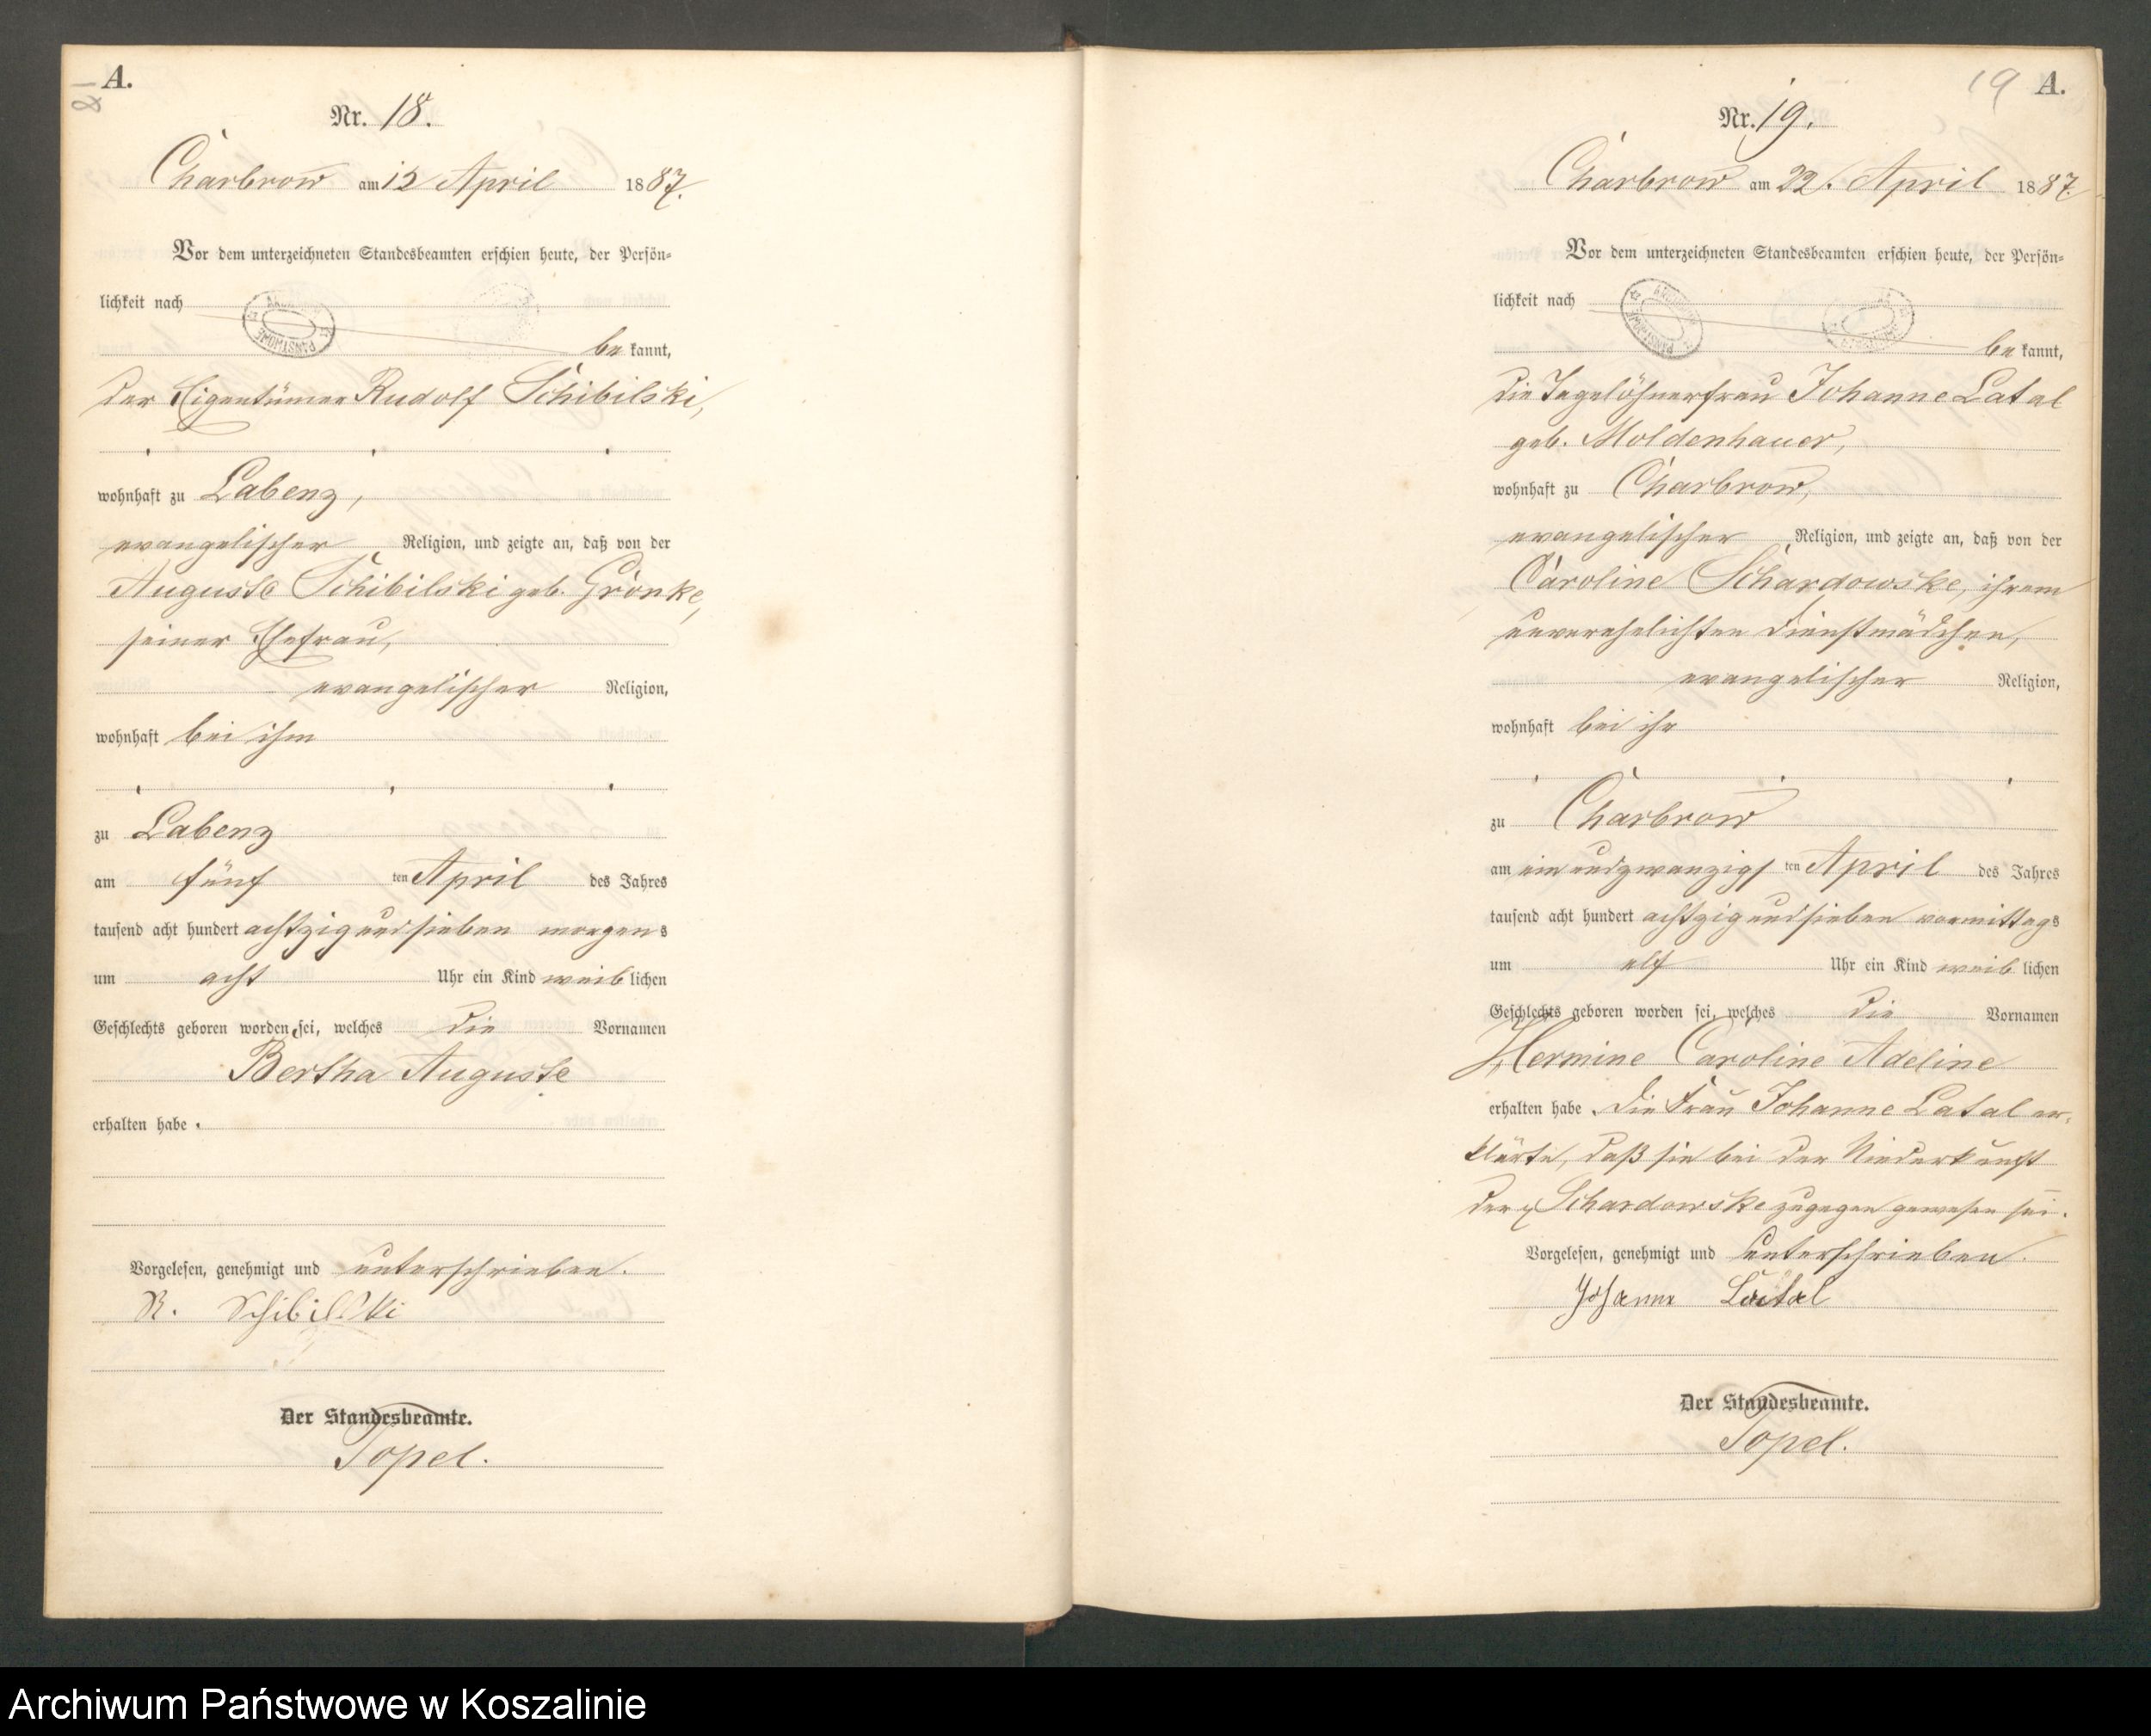 A.
18
Nr. 18.
Charbrow am 12 April 1887.
Vor dem unterzeichneten Standesbeamten erschien heute, der Persön-
lichkeit nach
bekannt,
der Eigentümer Rudolf Schibilski,
wohnhaft zu Labenz,
evangelischer Religion, und zeigte an, daß von der
Auguste Schibilski geb. Grönke,
seiner Ehefrau,
evangelischer Religion,
wohnhaft bei ihm
zu Labenz
am fünf ten April des Jahres
tausend acht hundert achtzig und sieben morgens
um acht Uhr ein Kind weiblichen
Geschlechts geboren worden sei, welches die Vornamen
Bertha Auguste
erhalten habe.
Vorgelesen, genehmigt und unterschrieben.
R. Schibilski
Der Standesbeamte.
Topel.
19 A.
Nr. 19.
Charbrow am 22. April 1887.
Vor dem unterzeichneten Standesbeamten erschien heute, der Persön-
lichkeit nach
bekannt,
die Tagelöhnerfrau Johanne Latal
geb. Moldenhauer,
wohnhaft zu Charbrow,
evangelischer Religion, und zeigte an, daß von der
Caroline Schardowske, ihrem
unverehelichten Dienstmädchen,
evangelischer Religion,
wohnhaft bei ihr
zu Charbrow
am ein und zwanzigsten April des Jahres
tausend acht hundert achtzig und sieben vormittags
um elf Uhr ein Kind weiblichen
Geschlechts geboren worden sei, welches die Vornamen
Hermine Caroline Adeline
erhalten habe. Die Frau Johanne Latal er-
klärte, daß sie bei der Niederkunft
der Schardowske zugegen gewesen sei.
Vorgelesen, genehmigt und unterschrieben.
Johanne Latal
Der Standesbeamte.
Topel.
Archiwum Państwowe w Koszalinie